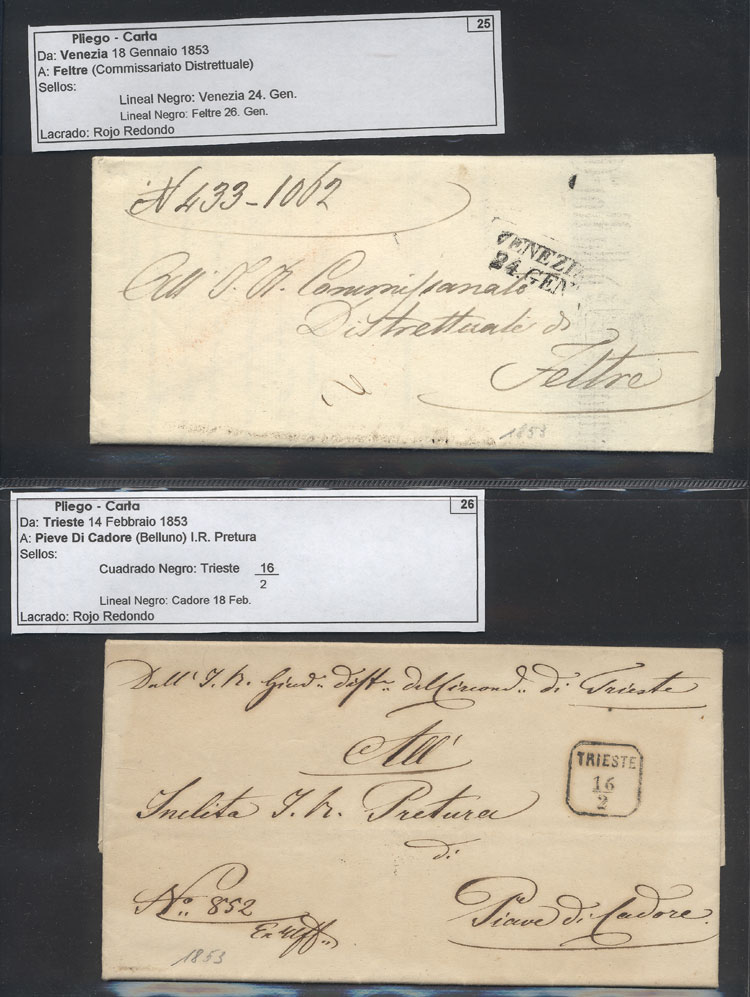 Pliego - Carta
25
Da: Venezia 18 Gennaio 1853
A: Feltre (Commissariato Distrettuale)
Sellos:
Lineal Negro: Venezia 24. Gen.
Lineal Negro: Feltre 26. Gen.
Lacrado: Rojo Redondo
N 433-1062
VENEZIA
24. GEN
All' I. R. Commissariato
Distrettuale di
Feltre
1853
Pliego - Carta
26
Da: Trieste 14 Febbraio 1853
A: Pieve Di Cadore (Belluno) I.R. Pretura
Sellos:
Cuadrado Negro: Trieste 16
2
Lineal Negro: Cadore 18 Feb.
Lacrado: Rojo Redondo
Dall' I. R. Giud. distr. del Circond. di Trieste
All'
TRIESTE
16
2
Inclita I. R. Pretura
di
No. 852
Ex Uff.
Piave di Cadore.
1853